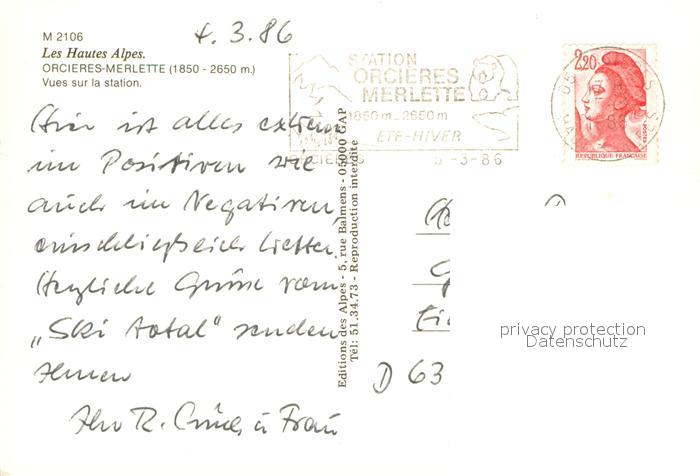 M 2106
4.3.86
Les Hautes Alpes.
ORCIERES-MERLETTE (1850 - 2650 m.)
Vues sur la station.
STATION
ORCIERES
MERLETTE
1850 m. - 2650 m
ETE-HIVER
ORCIERES
5-3-86
2,20
REPUBLIQUE FRANÇAISE
Hier ist alles extrem
im Positiven wie
auch im Negativen,
einschließlich Wetter.
Herzliche Grüsse vom
„Ski total" senden
Ihnen
Ihr R. u Frau
Editions des Alpes - 5, rue Balmens - 05000 GAP
Tél: 51.34.73 - Reproduction interdite
D 63
privacy protection
Datenschutz